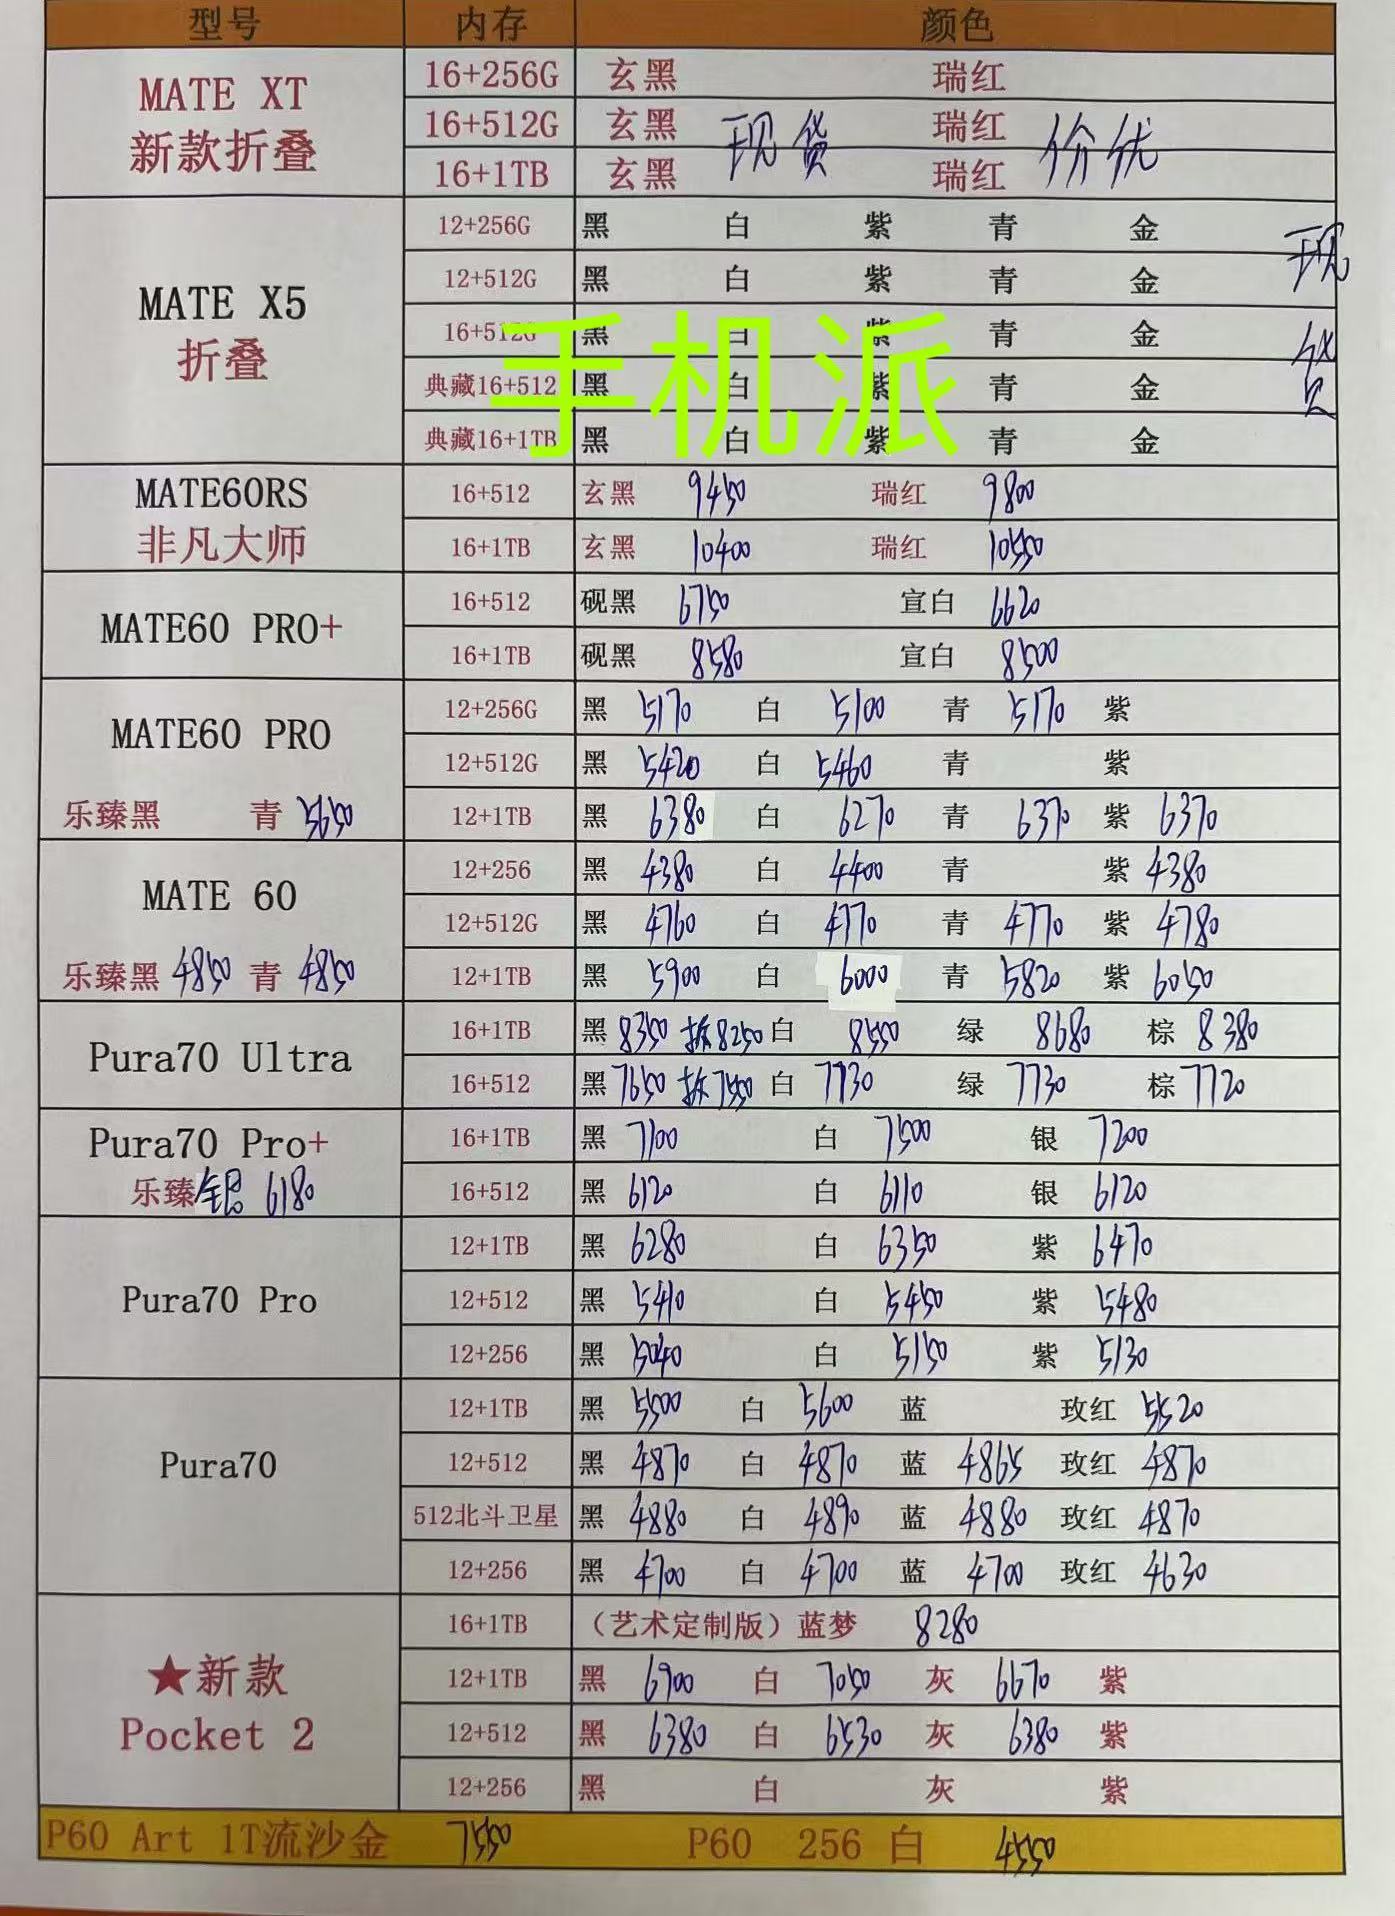 型号 内存 颜色
MATE XT 16+256G 玄黑 瑞红
新款折叠 16+512G 玄黑 现货 瑞红 价优
16+1TB 玄黑 瑞红
12+256G 黑 白 紫 青 金 现
12+512G 黑 白 紫 青 金
MATE X5 16+512G 黑 白 紫 青 金
折叠 典藏16+512 黑 白 紫 青 金
手机派
典藏16+1TB 黑 白 紫 青 金
MATE60RS 16+512 玄黑 9450 瑞红 9800
非凡大师 16+1TB 玄黑 10400 瑞红 10550
MATE60 PRO+ 16+512 砚黑 6750 宣白 6620
16+1TB 砚黑 8580 宣白 8500
MATE60 PRO 12+256G 黑 5170 白 5100 青 5170 紫
12+512G 黑 5420 白 5460 青 紫
乐臻黑 青 5650 12+1TB 黑 6380 白 6270 青 6370 紫 6370
MATE 60 12+256 黑 4380 白 4400 青 紫 4380
12+512G 黑 4760 白 4770 青 4770 紫 4780
乐臻黑 4850 青 4850 12+1TB 黑 5900 白 6000 青 5820 紫 6050
Pura70 Ultra 16+1TB 黑 8350 拆8250 白 8550 绿 8680 棕 8380
16+512 黑 7650 拆7550 白 7730 绿 7730 棕 7720
Pura70 Pro+ 16+1TB 黑 7100 白 7500 银 7200
乐臻银 6180 16+512 黑 6120 白 6110 银 6120
12+1TB 黑 6280 白 6350 紫 6470
Pura70 Pro 12+512 黑 5410 白 5450 紫 5480
12+256 黑 5040 白 5150 紫 5130
12+1TB 黑 5500 白 5600 蓝 玫红 5520
Pura70 12+512 黑 4870 白 4870 蓝 4865 玫红 4870
512北斗卫星 黑 4880 白 4890 蓝 4880 玫红 4870
12+256 黑 4700 白 4700 蓝 4700 玫红 4630
16+1TB (艺术定制版)蓝梦 8280
★新款 12+1TB 黑 6900 白 7050 灰 6670 紫
Pocket 2 12+512 黑 6380 白 6530 灰 6380 紫
12+256 黑 白 灰 紫
P60 Art 1T流沙金 7550 P60 256 白 4550